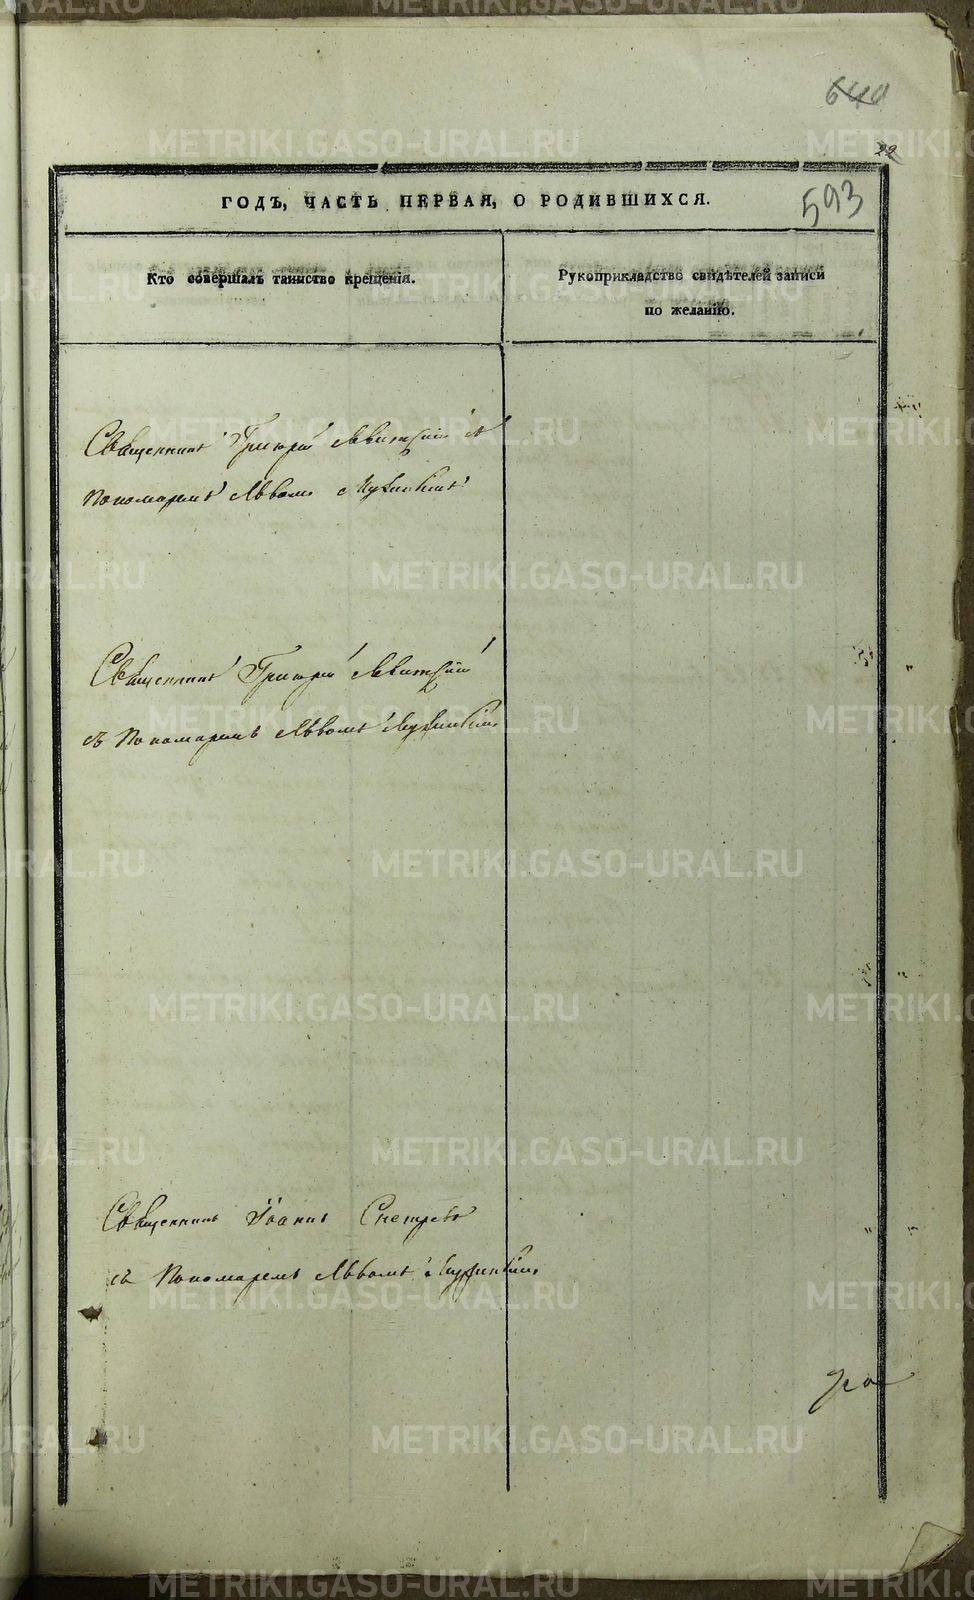 640
22
593
ГОДЪ, ЧАСТЬ ПЕРВАЯ, О РОДИВШИХСЯ.
Кто совершалъ таинство крещенія.
Рукоприкладство свидѣтелей записи
по желанію.
Священникъ Григорій Левитскій съ
Пономаремъ Львомъ
Священникъ Григорій Левитскій
съ Пономаремъ Львомъ
Священникъ Іоаннъ
съ Пономаремъ Львомъ
METRIKI.GASO-URAL.RU